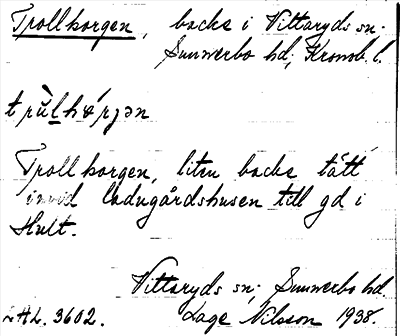 Trollhorgen, backe i Vittaryds sn.
Sunnerbo hd, Kronob. l.
trùl̠hœ́rjən
Trollhorgen, liten backe tätt
invid ladugårdshusen till gd i
Hult.
Vittaryds sn, Sunnerbo hd.
AL. 3602. Lage Nilsson 1938.